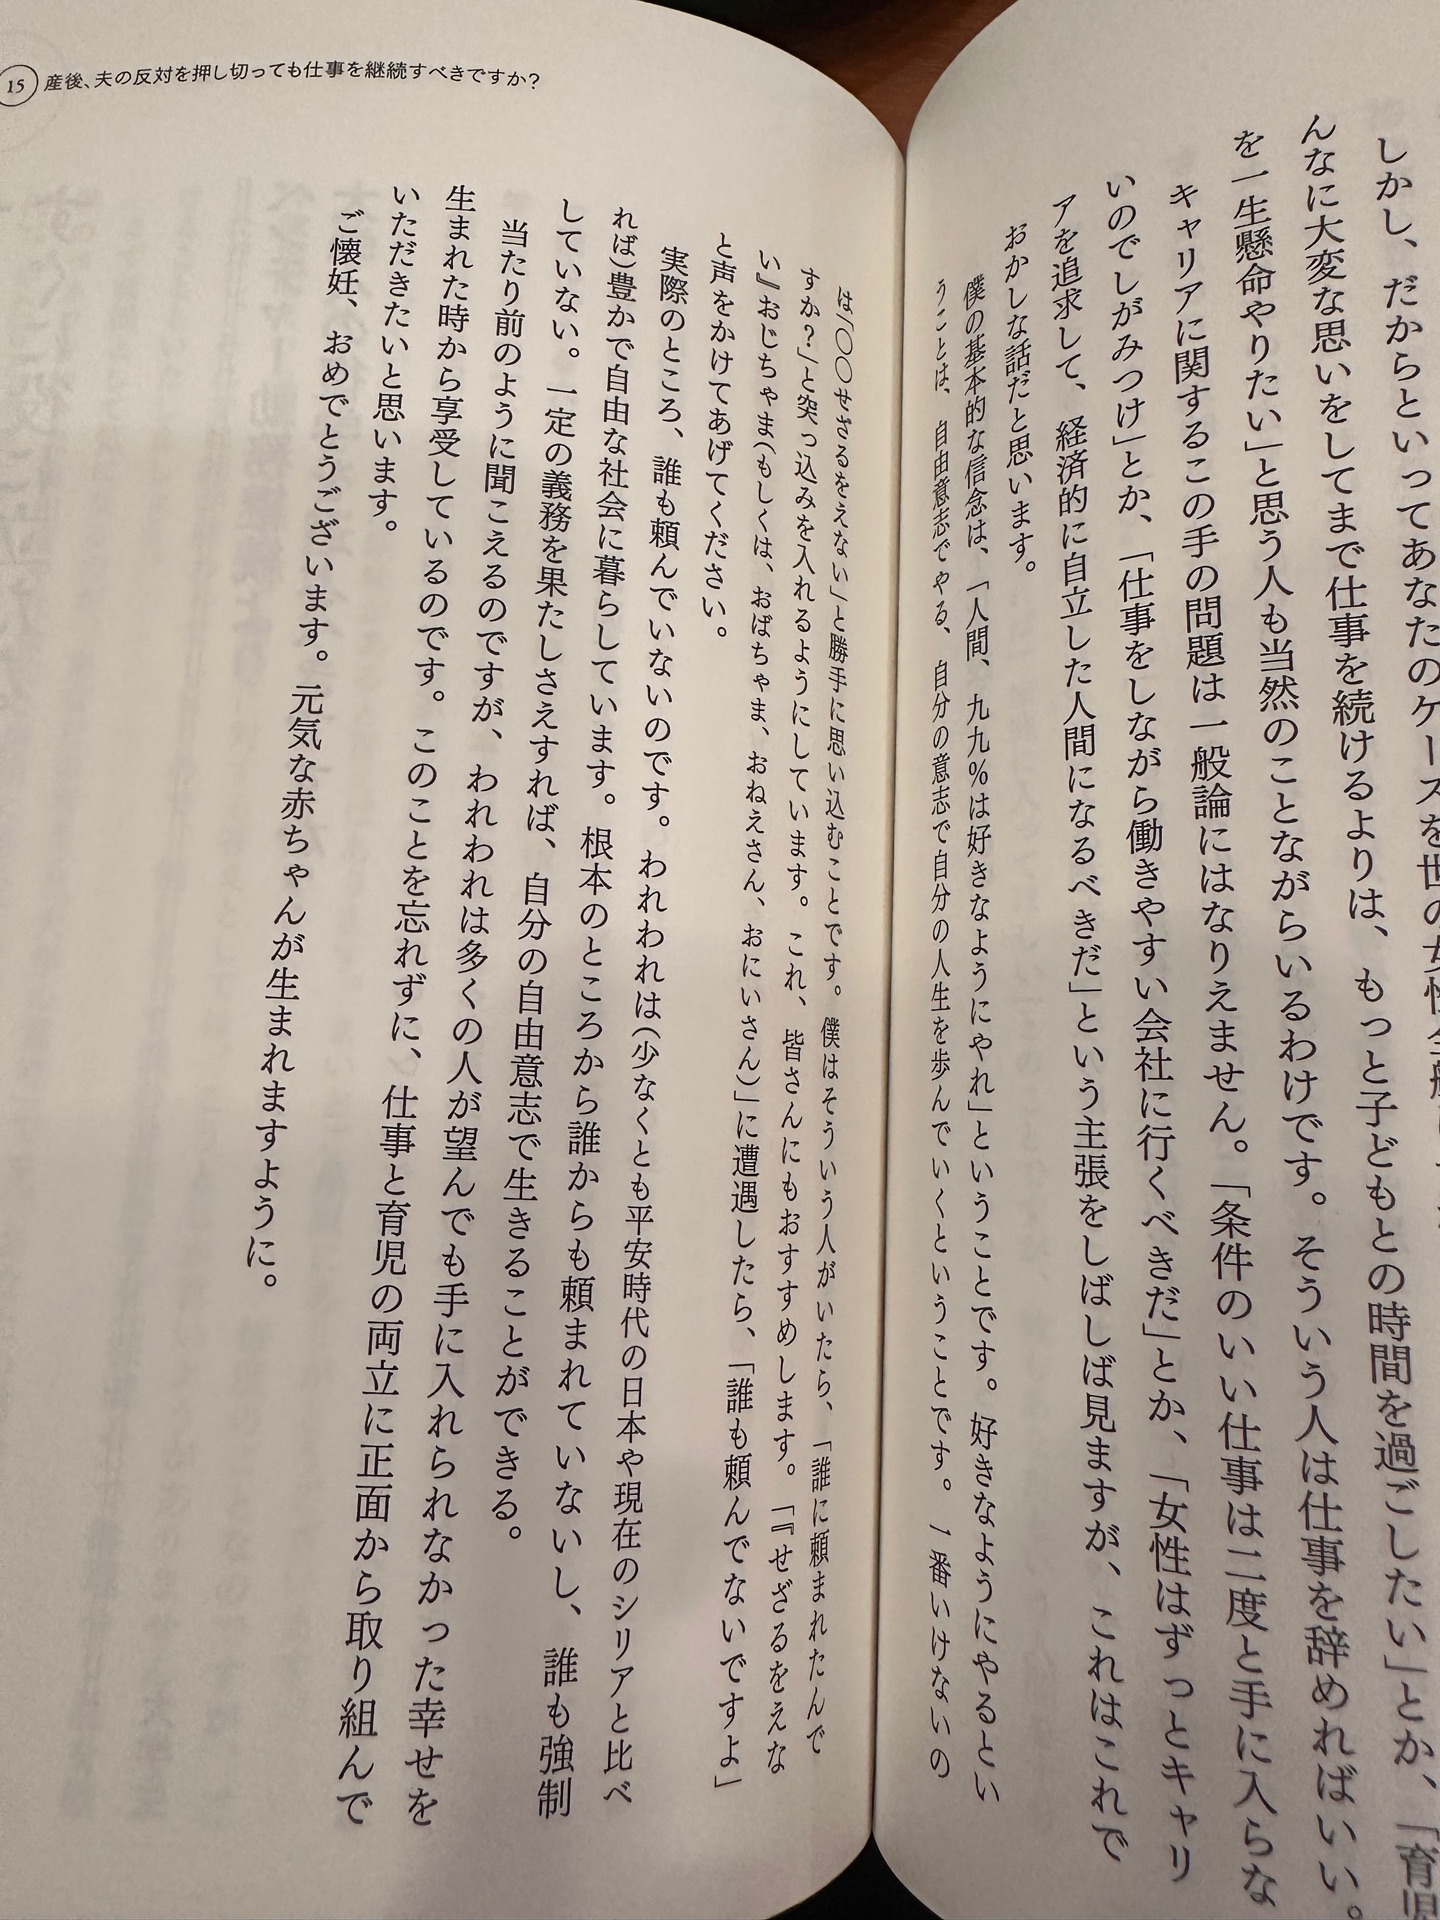 しかし、だからといってあなたのケースを世の女性全般に
んなに大変な思いをしてまで仕事を続けるよりは、もっと子どもとの時間を過ごしたい」とか、「育児
を一生懸命やりたい」と思う人も当然のことながらいるわけです。そういう人は仕事を辞めればいい。
キャリアに関するこの手の問題は一般論にはなりえません。「条件のいい仕事は二度と手に入らな
いのでしがみつけ」とか、「仕事をしながら働きやすい会社に行くべきだ」とか、「女性はずっとキャリ
アを追求して、経済的に自立した人間になるべきだ」という主張をしばしば見ますが、これはこれで
おかしな話だと思います。
僕の基本的な信念は、「人間、九九%は好きなようにやれ」ということです。好きなようにやるとい
うことは、自由意志でやる、自分の意志で自分の人生を歩んでいくということです。一番いけないの
は「〇〇せざるをえない」と勝手に思い込むことです。僕はそういう人がいたら、「誰に頼まれたんで
すか?」と突っ込みを入れるようにしています。これ、皆さんにもおすすめします。「『せざるをえな
い』おじちゃま(もしくは、おばちゃま、おねえさん、おにいさん)」に遭遇したら、「誰も頼んでないですよ」
と声をかけてあげてください。
実際のところ、誰も頼んでいないのです。われわれは(少なくとも平安時代の日本や現在のシリアと比べ
れば)豊かで自由な社会に暮らしています。根本のところから誰からも頼まれていないし、誰も強制
していない。一定の義務を果たしさえすれば、自分の自由意志で生きることができる。
当たり前のように聞こえるのですが、われわれは多くの人が望んでも手に入れられなかった幸せを
生まれた時から享受しているのです。このことを忘れずに、仕事と育児の両立に正面から取り組んで
いただきたいと思います。
ご懐妊、おめでとうございます。元気な赤ちゃんが生まれますように。
15 産後、夫の反対を押し切っても仕事を継続すべきですか?